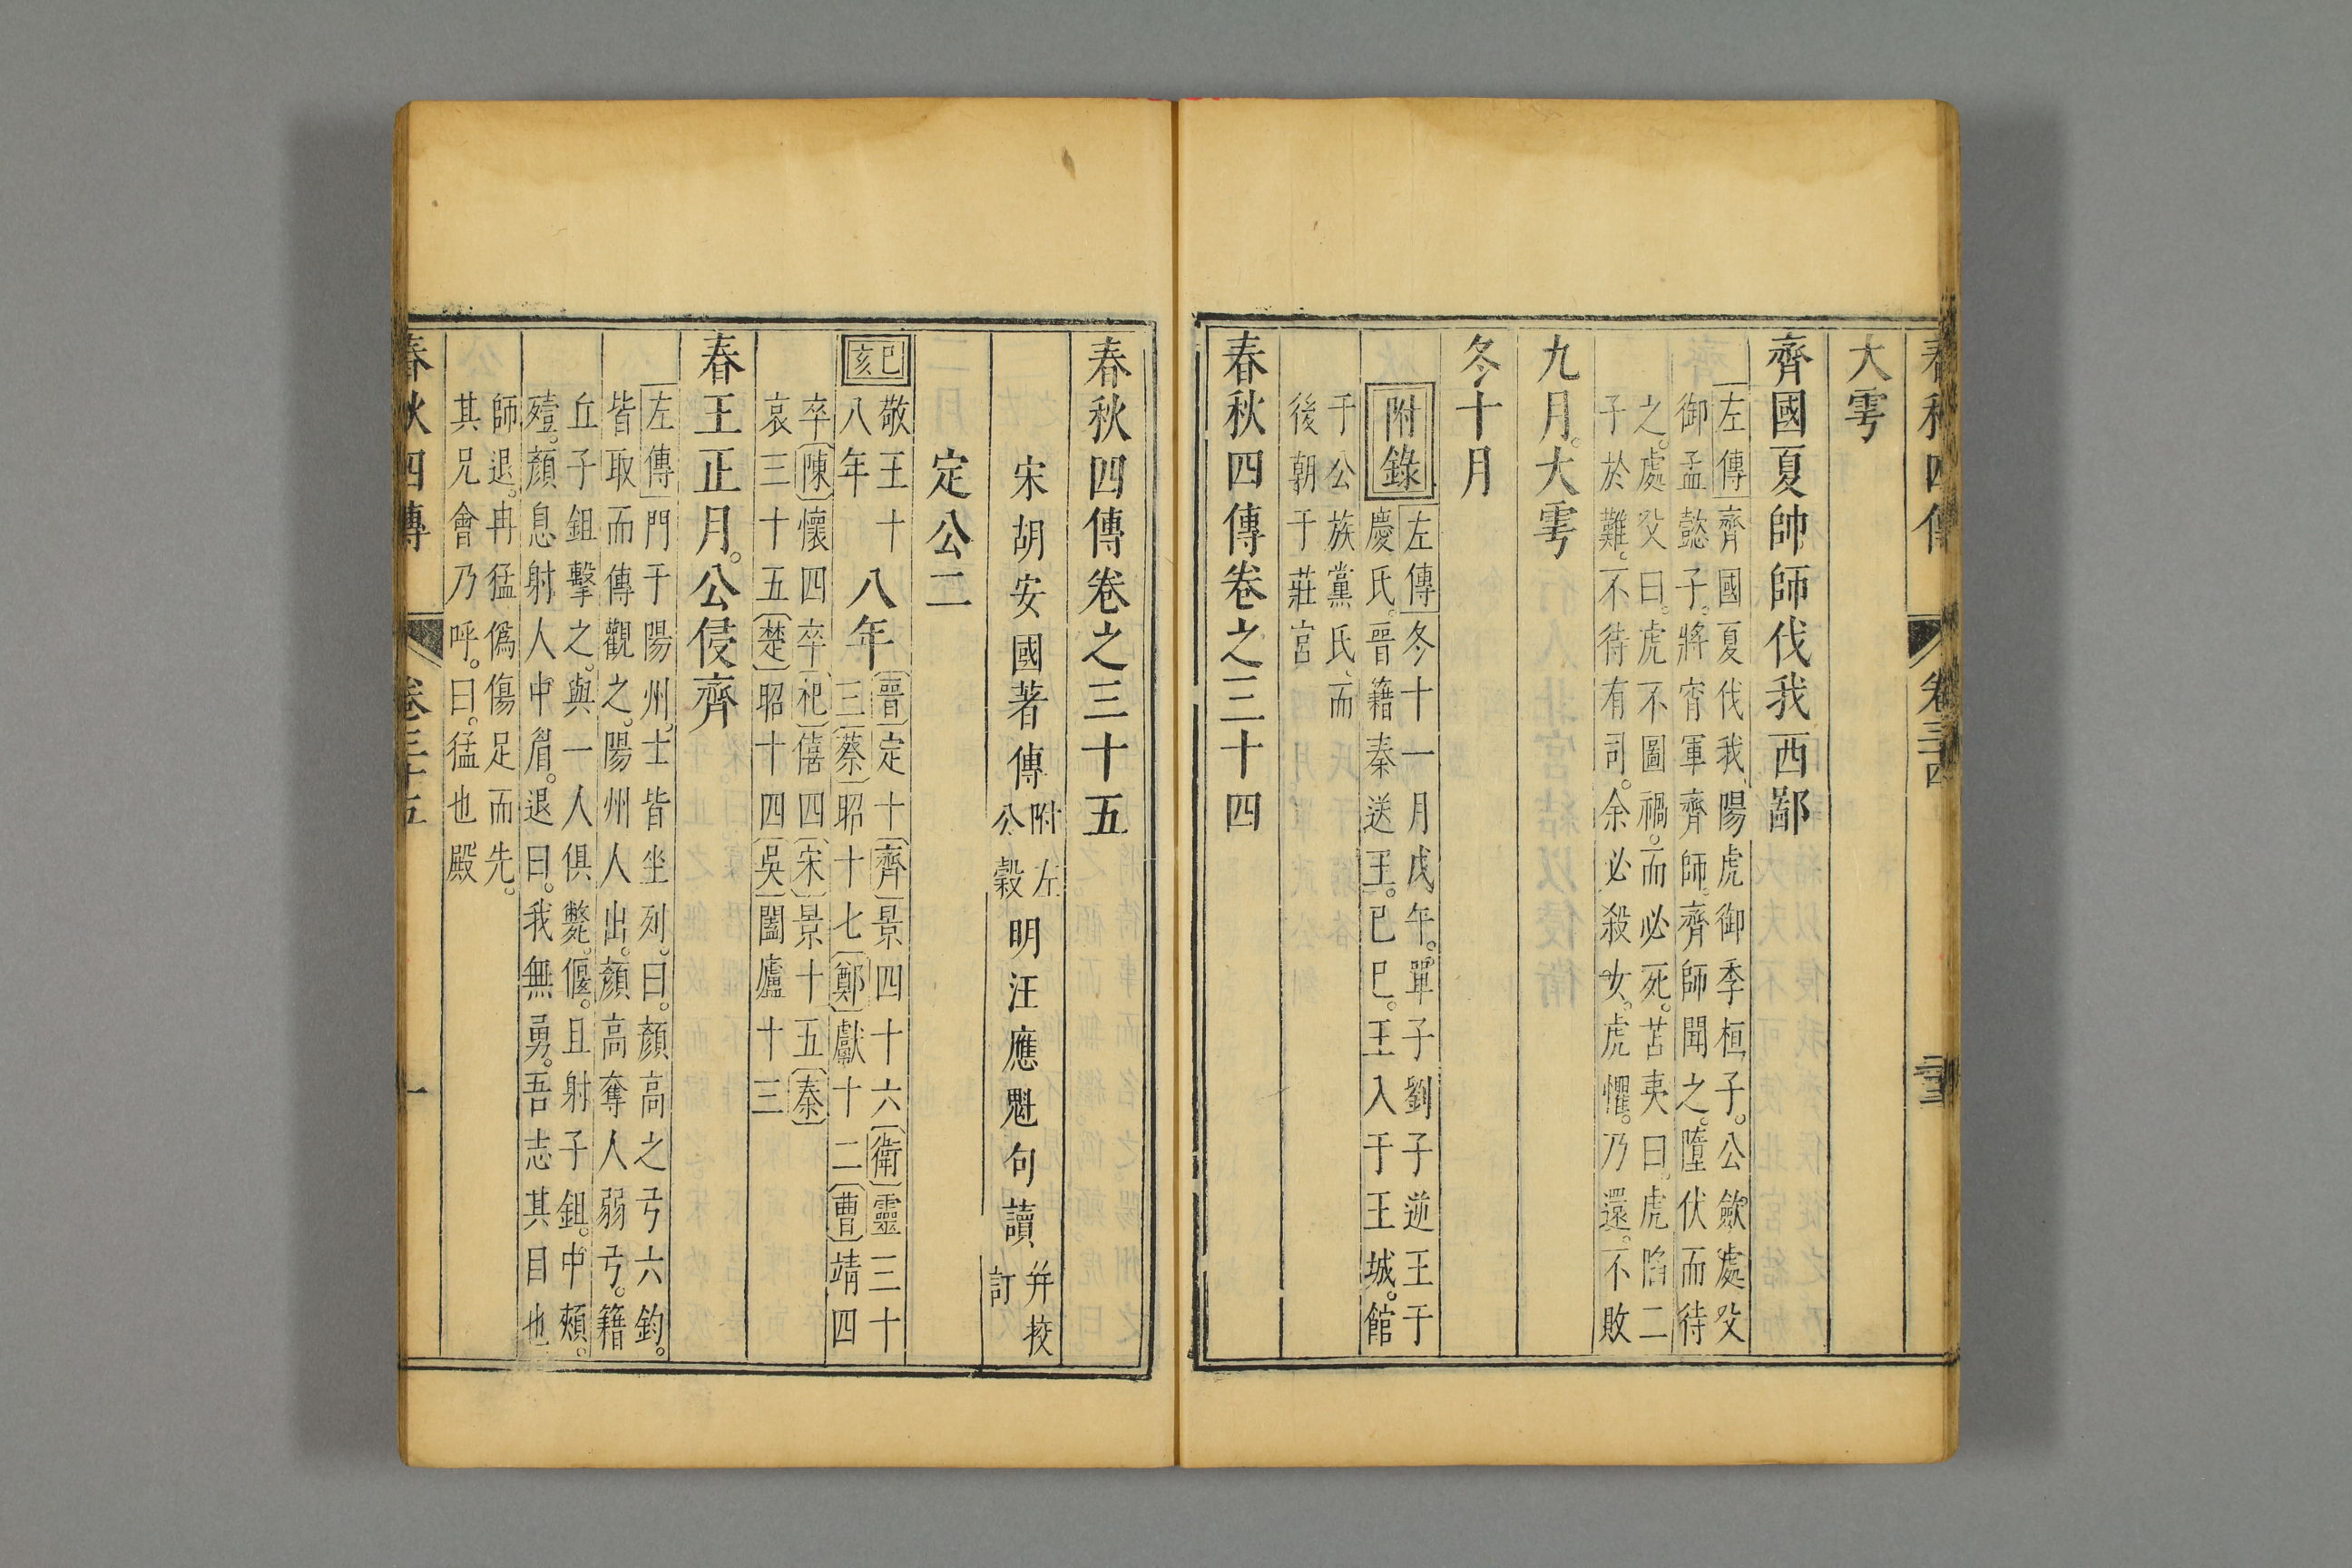 春秋四傳
卷三十四
二十三
大雩
齊國夏帥師伐我西鄙
左傳齊國夏伐我陽虎御季桓子。公歛處父
御孟懿子。將宵軍齊師。齊師聞之。墮伏而待
之。處父曰。虎不圖禍。而必死。苫夷曰。虎陷二
子於難。不待有司。余必殺女。虎懼。乃還。不敗
九月。大雩
冬十月
附錄
左傳冬十一月戊午。單子劉子逆王于
慶氏。晉籍秦送王。己巳。王入于王城。館
于公族黨氏、而
後朝于莊宮
春秋四傳卷之三十四
春秋四傳卷之三十五
宋胡安國著傳
附左
公穀
明汪應魁句讀
并挍
訂
定公二
己亥
敬王十
八年
八年
晉定十齊景四十六衛靈三十
三蔡昭十七鄭獻十二曹靖四
卒陳懷四卒杞僖四宋景十五秦
哀三十五楚昭十四吳闔廬十三
春王正月。公侵齊
左傳門于陽州。士皆坐列。曰。顏高之弓六鈞。
皆取而傳觀之。陽州人出。顏高奪人弱弓。籍
丘子鉏擊之。與一人俱斃。偃。且射子鉏。中頰。
殪。顏息射人中眉。退曰。我無勇。吾志其目也
師退。冉猛偽傷足而先。
其兄會乃呼。曰。猛也殿
春秋四傳
卷三十五
一